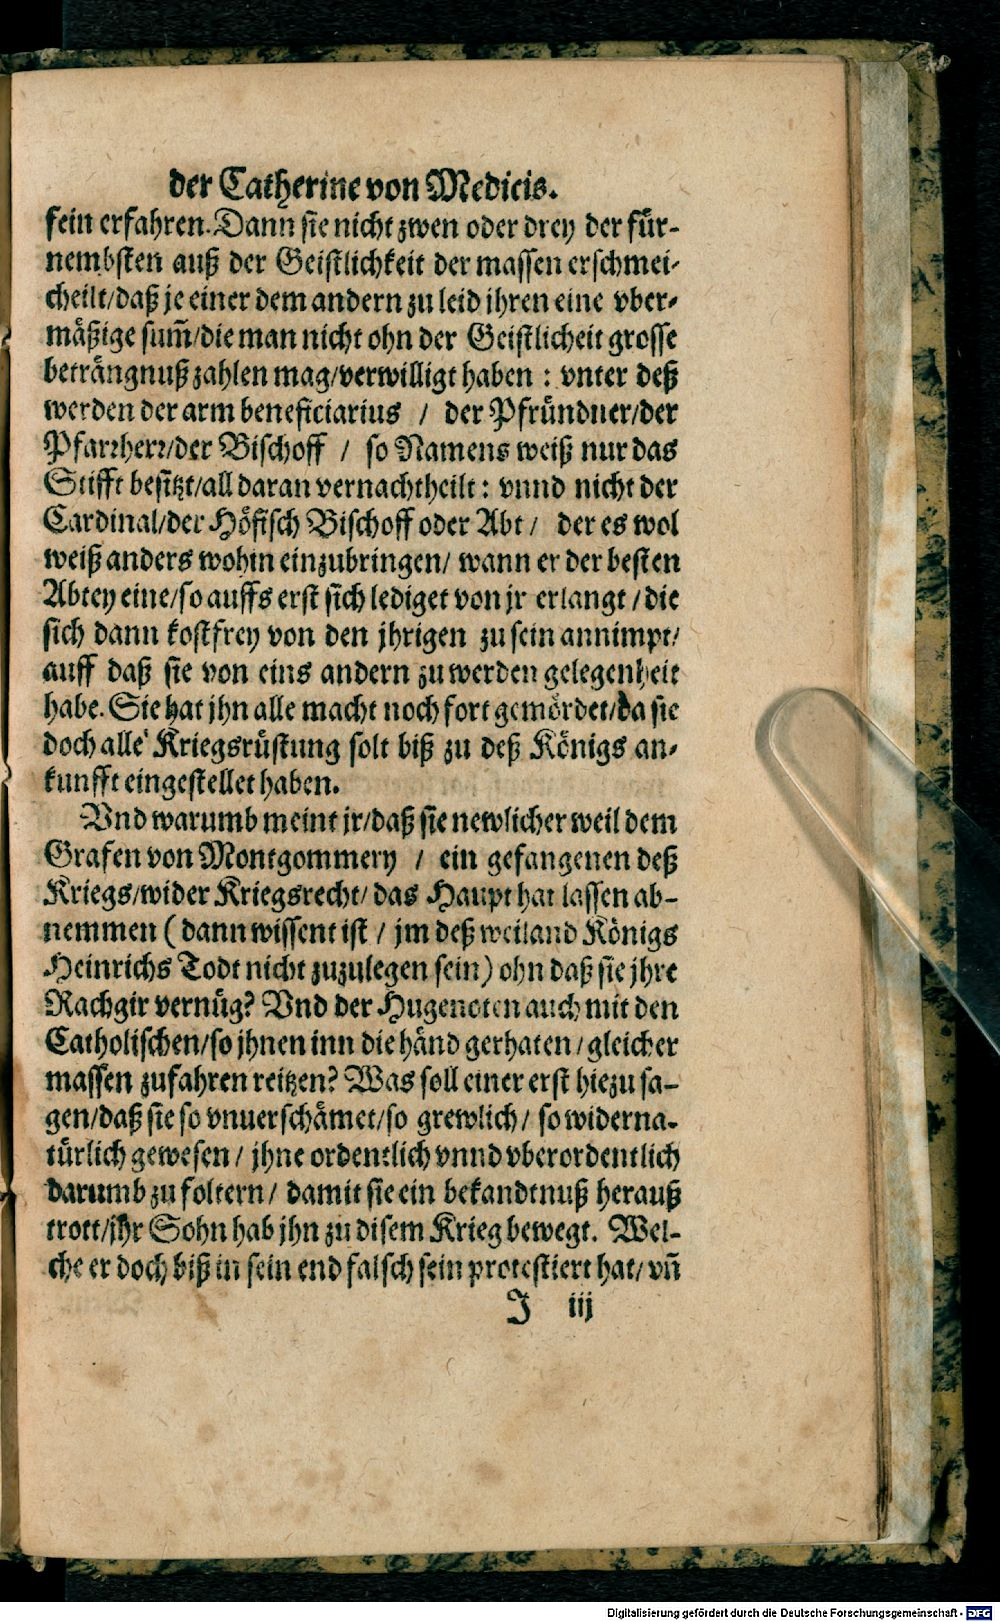 der Catherine von Medicis.
fein erfahren. Dann sie nicht zwen oder drey der für-
nembsten auß der Geistlichkeit der massen erschmei-
cheilt/daß je einer dem andern zu leid jhren eine vber-
mäßige sum̄/die man nicht ohn der Geistlicheit grosse
beträngnuß zahlen mag/verwilligt haben : vnter deß
werden der arm beneficiarius / der Pfründner/der
Pfarrherr/der Bischoff / so Namens weiß nur das
Stifft besitzt/all daran vernachtheilt : vnnd nicht der
Cardinal/der Höfisch Bischoff oder Abt / der es wol
weiß anders wohin einzubringen/ wann er der besten
Abtey eine/so auffs erst sich lediget von jr erlangt / die
sich dann kostfrey von den jhrigen zu sein annimpt/
auff daß sie von eins andern zu werden gelegenheit
habe. Sie hat jhn alle macht noch fort gemördet/da sie
doch alle Kriegsrüstung solt biß zu deß Königs an-
kunfft eingestellet haben.
Vnd warumb meint jr/daß sie newlicher weil dem
Grafen von Montgommery / ein gefangenen deß
Kriegs/wider Kriegsrecht/ das Haupt hat lassen ab-
nemmen ( dann wissent ist / jm deß weiland Königs
Heinrichs Todt nicht zuzulegen sein) ohn daß sie jhre
Rachgir vernüg? Vnd der Hugenoten auch mit den
Catholischen/so jhnen inn die händ gerhaten / gleicher
massen zufahren reitzen? Was soll einer erst hiezu sa-
gen/daß sie so vnuerschämet/so grewlich / so widerna-
türlich gewesen / jhne ordentlich vnnd vberordentlich
darumb zu foltern / damit sie ein bekandtnuß herauß
trott/jhr Sohn hab jhn zu disem Krieg bewegt. Wel-
che er doch biß in sein end falsch sein protestiert hat/ vn̄
J iij
Digitalisierung gefördert durch die Deutsche Forschungsgemeinschaft - DFG